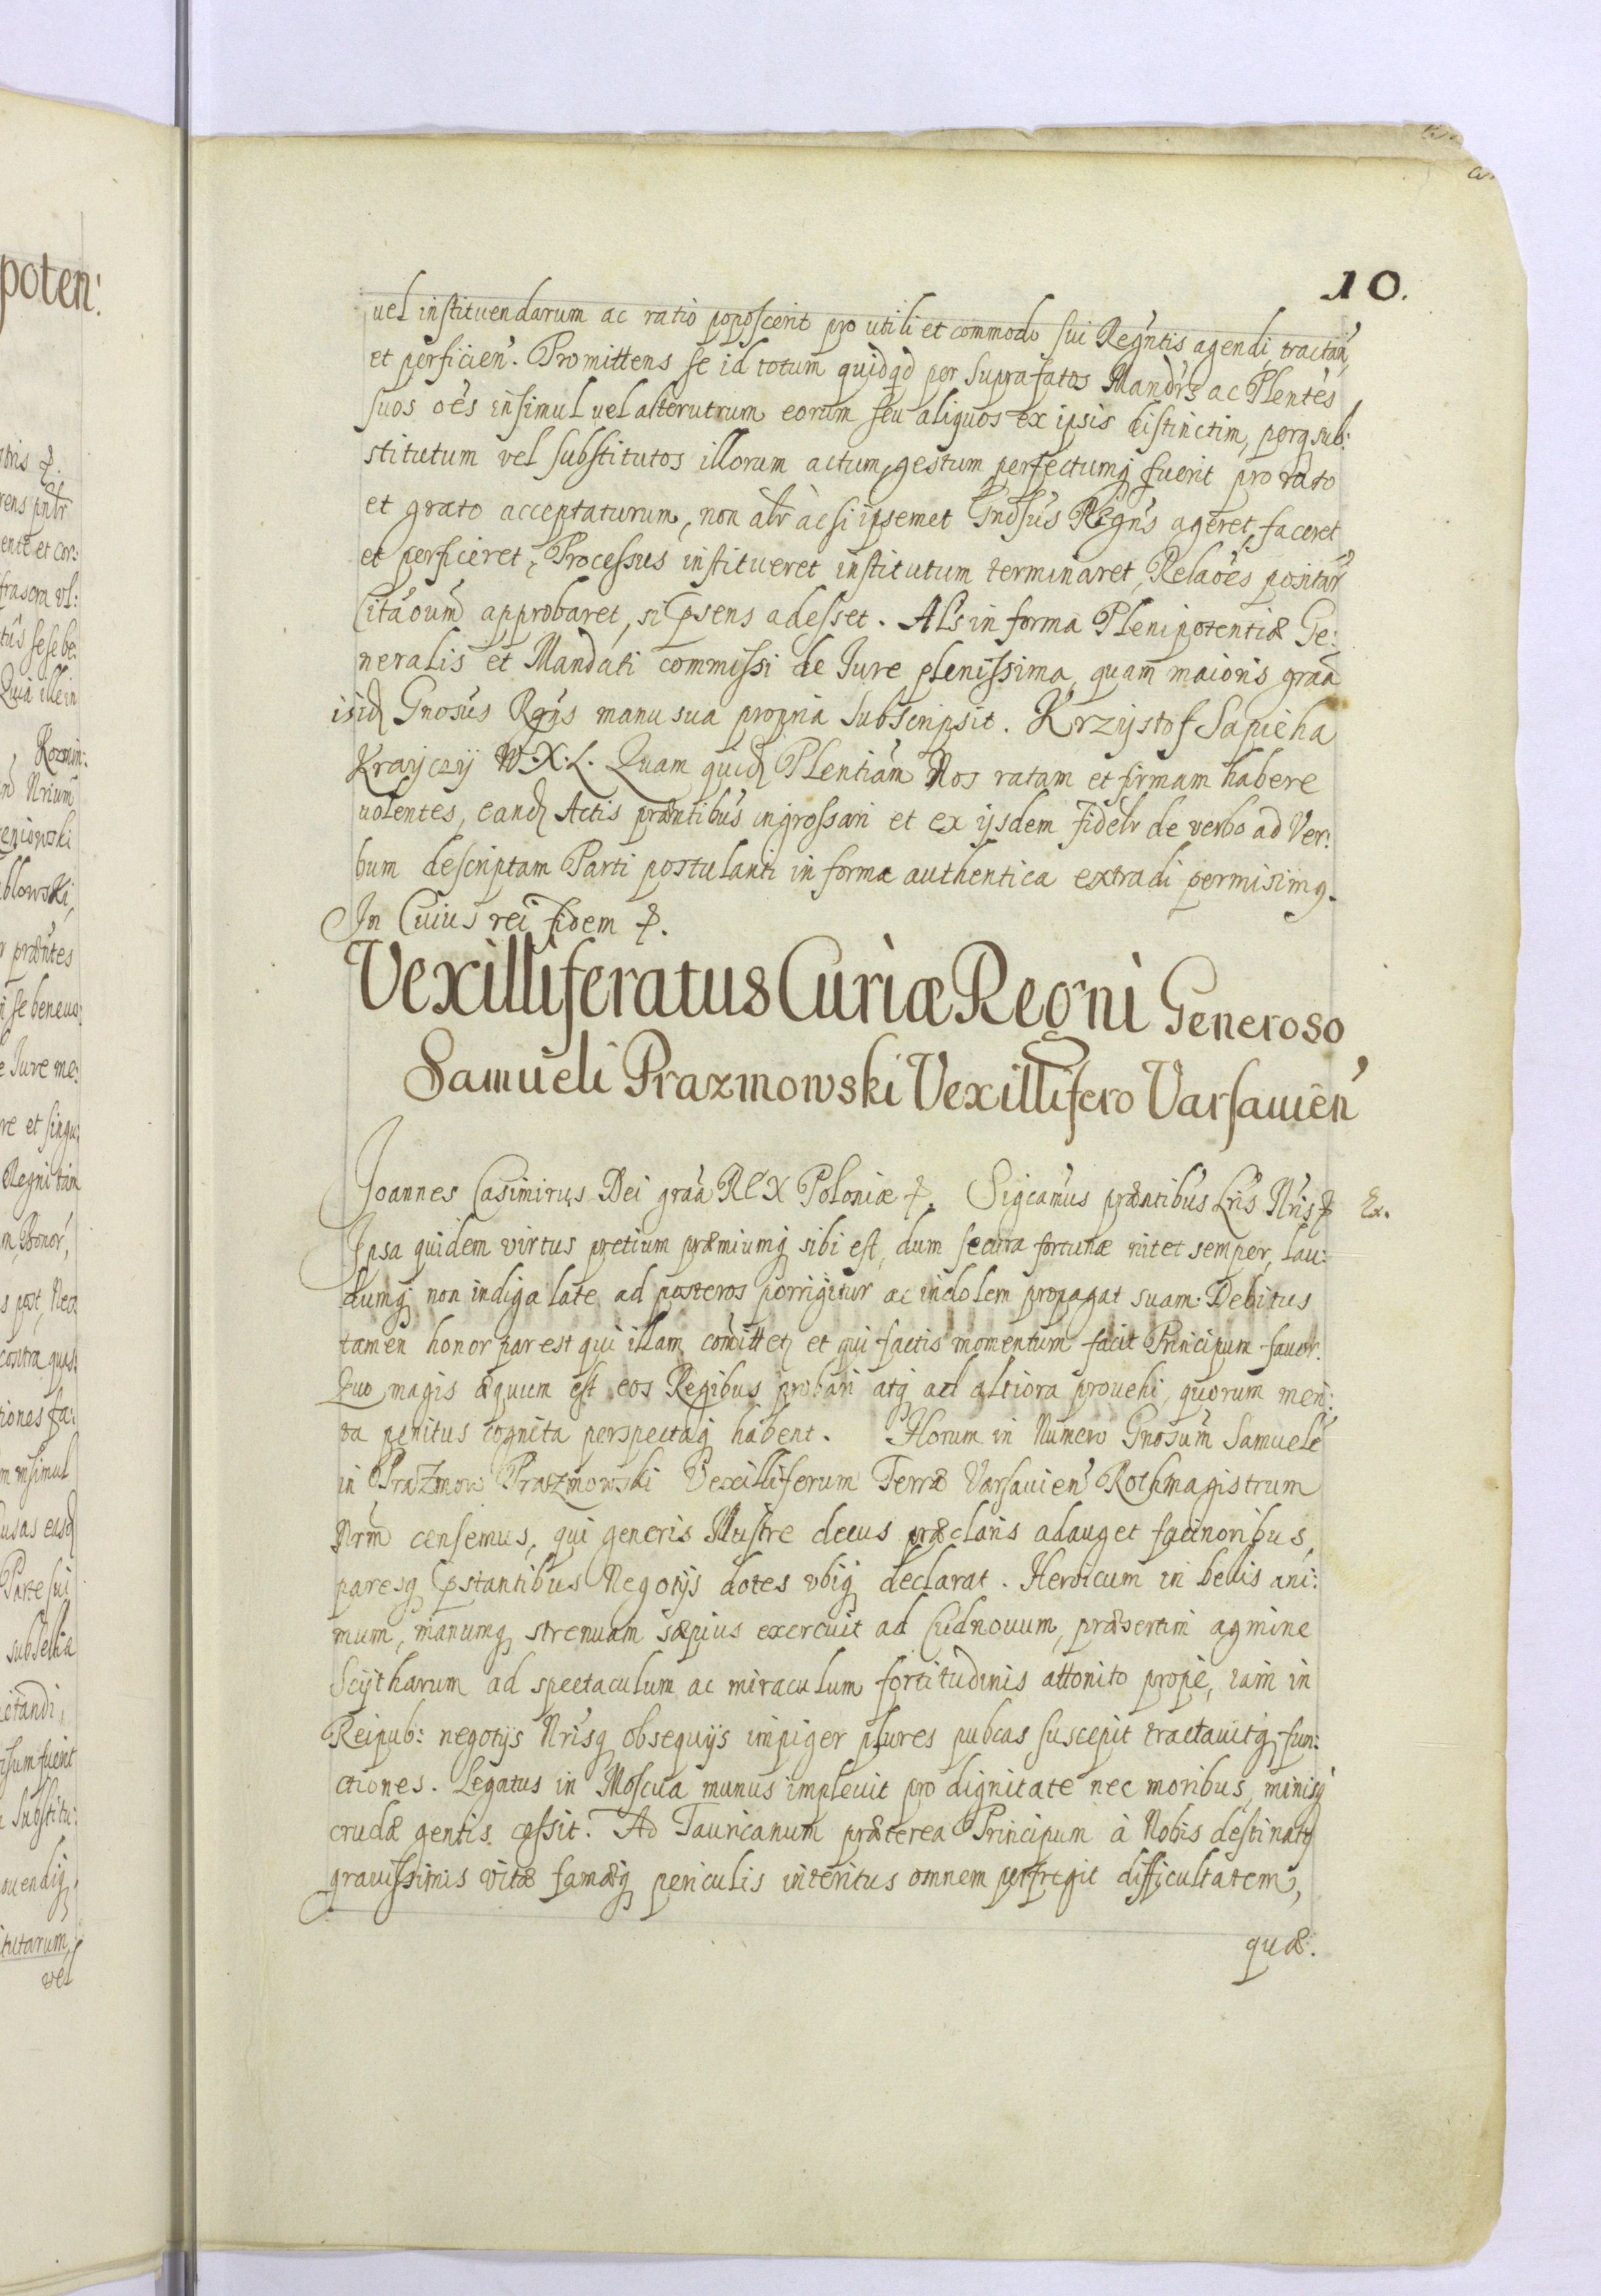 10.
vel instituendarum ac ratio poposcerit pro utili et commodo sui Regn̄tis agendi, tractan̄,
et perficien̄. Promittens se id totum quidqd per suprafatos Mandr̄s ac Plentēs
suos oēs insimul vel alterutrum eorum seu aliquos ex ipsis distinctim, perq sub:
stitutum vel substitutos illorum actum, gestum perfectumq fuerit pro rato
et grato accepturum, non alr̄ ac si ipsemet Gnosūs Regn̄s ageret, faceret
et perficeret, Processus institueret institutum terminaret, Relaōes positar̄
Citaōum approbaret, si Psens adesset. Als in forma Plenipotentiæ Ge:
neralis et Mandati commissi de Jure plenissima, quam maioris graa
isid Gnosus Regn̄s manu sua propria subscripsit. Krzysztof Sapieha
Krayczy W. X. L. Quam quid Plentiam Nos ratam et firmam habere
volentes, eand Actis præntibus ingrossari et ex ijsdem fidelr de verbo ad Ver:
bum descriptam Parti postulanti in forma authentica extradi permisimq.
In Cuius rei fidem &.
Vexilliferatus Curiæ Regni Generoso
Samueli Prazmowski Vexillifero Varsauien̄
Joannes Casimirus Dei graa REX Poloniæ &. Sigcamus præntibus Lris Nris & Ex.
Ipsa quidem virtus pretium præmiumq sibi est, dum secura fortunæ nitet semper, lau:
dumq non indiga late ad posteros porrigitur ac indolem propagat suam. Debitus
tamen honor par est qui illam comittet et qui factis momentum facit Principum favor.
Quo magis æquum est eos Regibus probari atq ad altiora provehi, quorum meri:
ta penitus cognita perspectaq habent. Horum in Numero Gnosum Samuele
in Prazmow Prazmowski Vexilliferum Terræ Varsauien̄ Rothmagistrum
Nrm censemus, qui generis Illustre decus præclaris adauget facinoribus,
paresq Pstantibus Negotijs dotes vbiq declarat. Heroicum in bellis ani:
mum, manumq strenuam sæpius exercuit ad Cudnouum, præsertim agmine
Scytharum ad spectaculum ac miraculum fortitudinis attonito prope, iam in
Reipub: negotijs Nrisq obsequijs impiger plures pubcas suscepit tractauitq fun:
ctiones. Legatus in Moscua munus impleuit pro dignitate nec moribus, minisq
crudæ gentis cessit. Ad Tauricanum præterea Principum à Nobis destinatq
grauissimis vitæ famæq periculis interitus omnem perfregit difficultatem,
quæ.